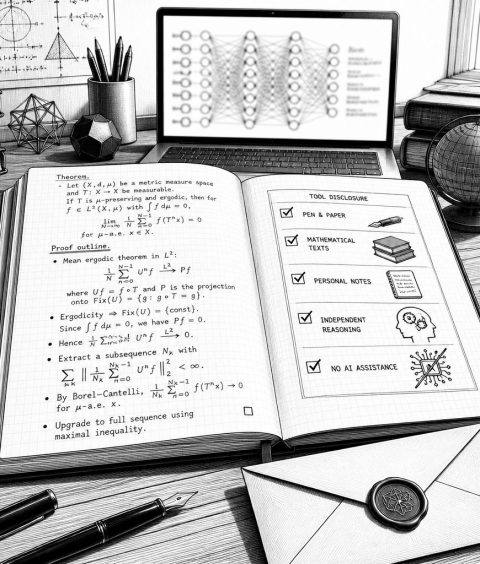 Theorem.
- Let (X,d,μ) be a metric measure space
and T: X → X be measurable.
If T is μ-preserving and ergodic, then for
f ∈ L²(X,μ) with ∫ f dμ = 0,
lim_{N→∞} 1/N ∑_{n=0}^{N-1} f(Tⁿx) = 0
for μ-a.e. x ∈ X.
Proof outline.
• Mean ergodic theorem in L²:
1/N ∑_{n=0}^{N-1} Uⁿf →^{L²} Pf
where Uf = f∘T and P is the projection
onto Fix(U) = {g: g∘T = g}.
• Ergodicity ⇒ Fix(U) = {const}.
Since ∫ f dμ = 0, we have Pf = 0.
• Hence 1/N ∑ Uⁿf →^{L²} 0.
• Extract a subsequence N_k with
∑_k ‖ 1/N_k ∑_{n=0}^{N_k-1} Uⁿf ‖₂² < ∞.
• By Borel-Cantelli, 1/N_k ∑_{n=0}^{N_k-1} f(Tⁿx) → 0
for μ-a.e. x.
• Upgrade to full sequence using
maximal inequality.
TOOL DISCLOSURE
PEN & PAPER
MATHEMATICAL
TEXTS
PERSONAL NOTES
INDEPENDENT
REASONING
NO AI ASSISTANCE
AI